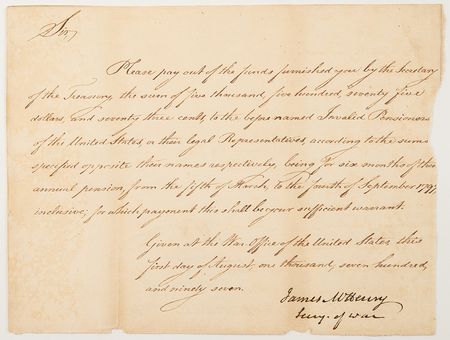 Sir,
Please pay out of the funds furnished you by the Secretary
of the Treasury, the sum of five thousand, five hundred, seventy five
dollars, and seventy three cents, to the before named Invalid Pensioners
of the United States, or their legal Representatives, according to the sums
specified opposite their names respectively, being for six months of their
annual pension, from the fifth of March, to the fourth of September 1797,
inclusive; for which payment this shall be your sufficient warrant.
Given at the War Office of the United States, this
first day of August, one thousand, seven hundred,
and ninety seven.
James McHenry
Secy. of war